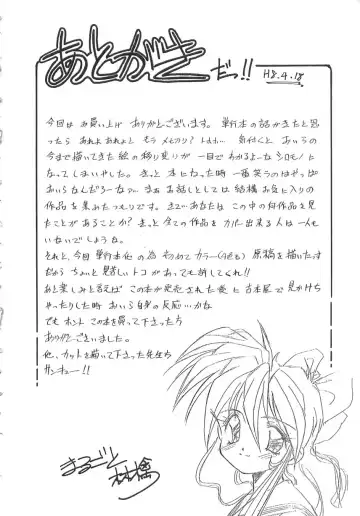 あとがきだっ!!
H8.4.18
今回はお買い上げ ありがとーございます。単行本の話がきたと思
ったら あれよあれよと もう〆切り? トホホ… 気付くと あいうの
今まで描いてきた絵の移り変りが 一目でわかるよーなシロモノに
なってしまいやした。きっと 本になった時 一番笑うのはやっぱ
あいらなんだろーなァ… まぁ お話しとしては 結構 お気に入りの
作品を集めたつもりです。さて…あなたは この中の何作品を見
たことがあることか? きっと 全ての作品を カバー出来る人は一人も
いないでしょうな。
それと、今回 単行本化の為 初めてカラー(4色も) 原稿を描いたす
だから ちょっと 見苦しいトコ があっても許してくれ!!
あと楽しみと言えば この本が売された後に 古本屋で見かけち
ゃったりした時 あいら自身の反応…かな
でも ホント この本を買って下さった方
ありがとーございました。
他、カットを描いて下さった先生も
サンキュー!!
まるごと
林檎